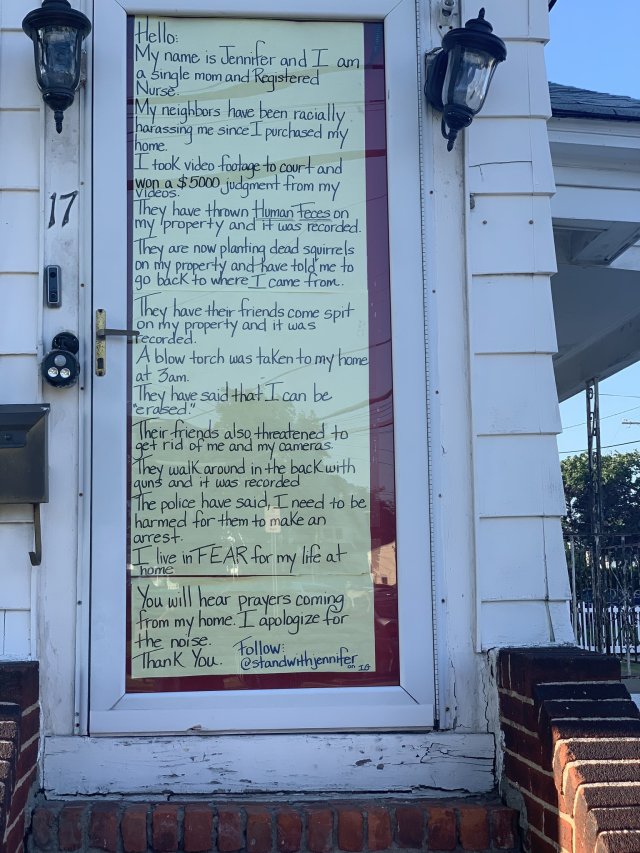 Hello:
My name is Jennifer and I am
a single mom and Registered
Nurse.
My neighbors have been racially
harassing me since I purchased my
home.
I took video footage to court and
won a $5000 judgment from my
videos.
They have thrown Human Feces on
my property and it was recorded.
They are now planting dead squirrels
on my property and have told me to
go back to where I came from.
They have their friends come spit
on my property and it was
recorded.
A blow torch was taken to my home
at 3am.
They have said that I can be
"erased."
Their friends also threatened to
get rid of me and my cameras.
They walk around in the back with
guns and it was recorded
The police have said, I need to be
harmed for them to make an
arrest.
I live in FEAR for my life at
home
You will hear prayers coming
from my home. I apologize for
the noise.
Thank You.
Follow:
@standwithjennifer
on IG
17